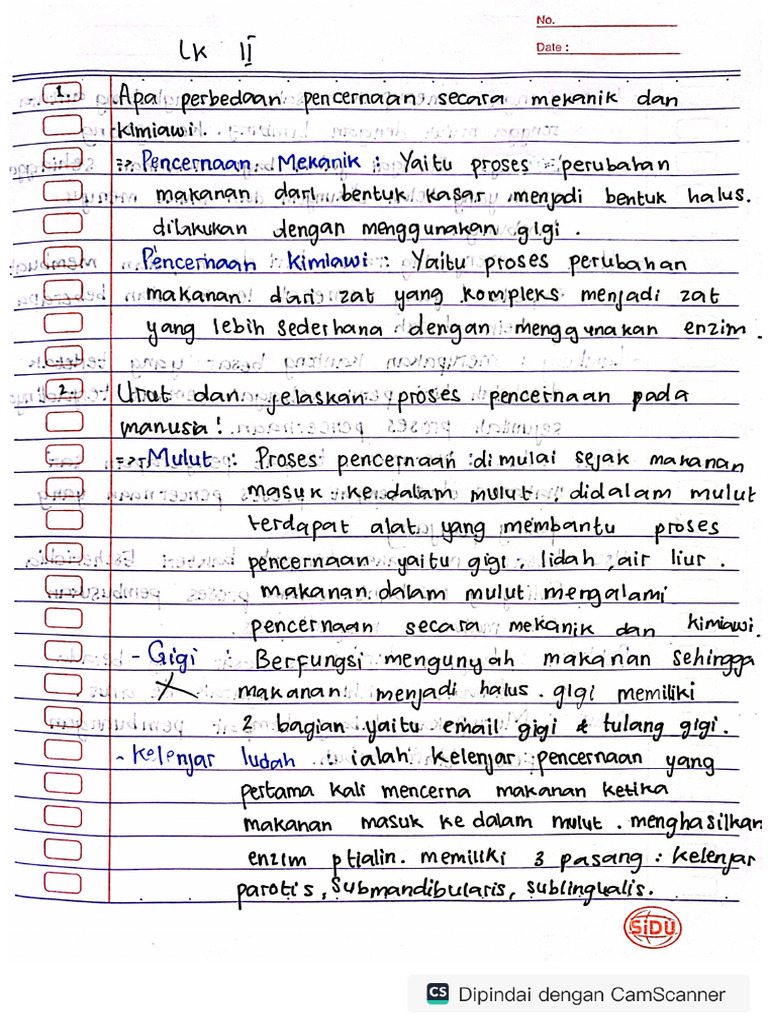 No.
Date :
LK II
1. Apa perbedaan pencernaan secara mekanik dan
kimiawi.
=> Pencernaan Mekanik : Yaitu proses perubahan
makanan dari bentuk kasar menjadi bentuk halus.
dilakukan dengan menggunakan gigi.
Pencernaan kimiawi : Yaitu proses perubahan
makanan dari zat yang kompleks menjadi zat
yang lebih sederhana dengan menggunakan enzim.
2. Urut dan jelaskan proses pencernaan pada
manusia!
=> Mulut : Proses pencernaan di mulai sejak makanan
masuk ke dalam mulut. didalam mulut
terdapat alat yang membantu proses
pencernaan yaitu gigi, lidah, air liur.
makanan dalam mulut mengalami
pencernaan secara mekanik dan kimiawi.
- Gigi : Berfungsi mengunyah makanan sehingga
makanan menjadi halus. gigi memiliki
2 bagian yaitu email gigi & tulang gigi.
- Kelenjar ludah : ialah kelenjar pencernaan yang
pertama kali mencerna makanan ketika
makanan masuk ke dalam mulut. menghasilkan
enzim ptialin. memiliki 3 pasang : kelenjar
parotis, submandibularis, sublingualis.
SiDU
CS Dipindai dengan CamScanner